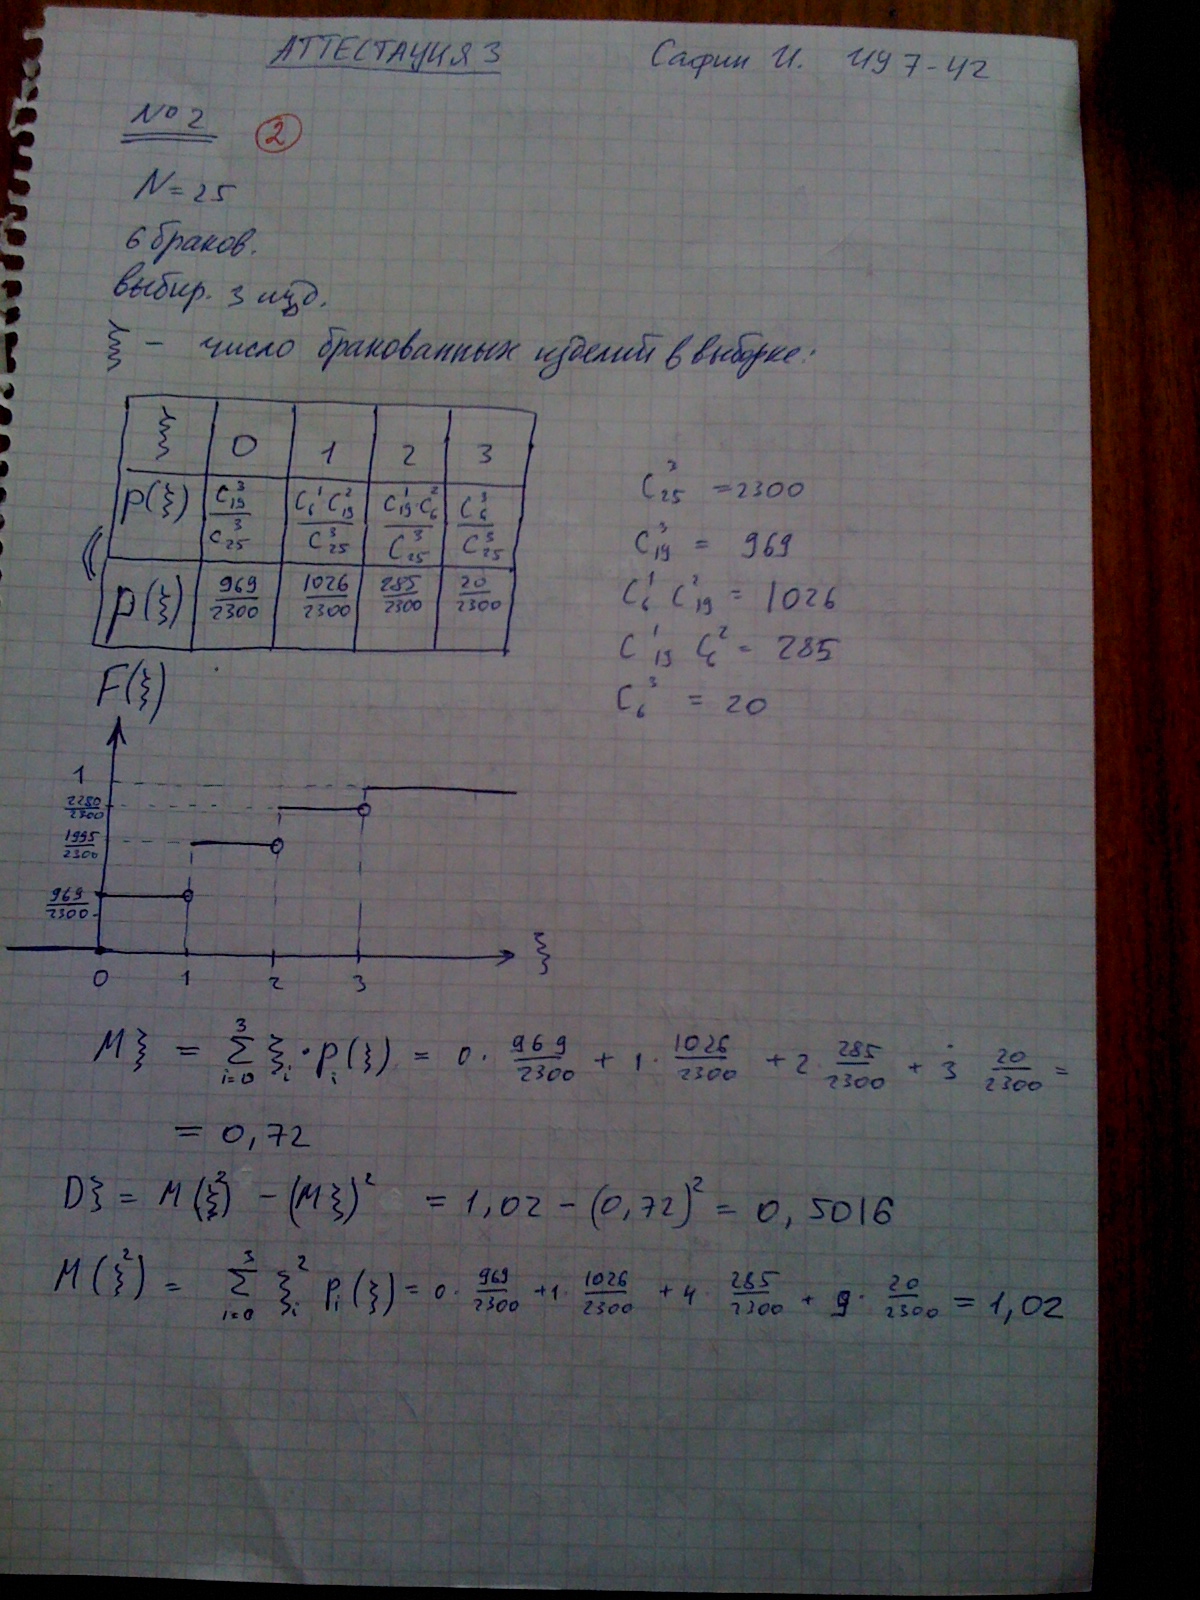 АТТЕСТАЦИЯ 3 Сафин И. ИУ7-42
№2 2
N=25
6 браков.
выбир. 3 изд.
ξ - число бракованных изделий в выборке:
ξ 0 1 2 3
P(ξ) C₁₉³/C₂₅³ C₆¹C₁₉²/C₂₅³ C₁₉¹·C₆²/C₂₅³ C₆³/C₂₅³
P(ξ) 969/2300 1026/2300 285/2300 20/2300
C₂₅³ = 2300
C₁₉³ = 969
C₆¹ C₁₉² = 1026
C₁₉¹ C₆² = 285
C₆³ = 20
F(ξ)
1
2280/2300
1995/2300
969/2300
0 1 2 3 ξ
Mξ = ∑ᵢ₌₀³ ξᵢ·pᵢ(ξ) = 0·969/2300 + 1·1026/2300 + 2·285/2300 + 3·20/2300 =
= 0,72
Dξ = M(ξ²) - (Mξ)² = 1,02 - (0,72)² = 0,5016
M(ξ²) = ∑ᵢ₌₀³ ξᵢ² pᵢ(ξ) = 0·969/2300 + 1·1026/2300 + 4·285/2300 + 9·20/2300 = 1,02